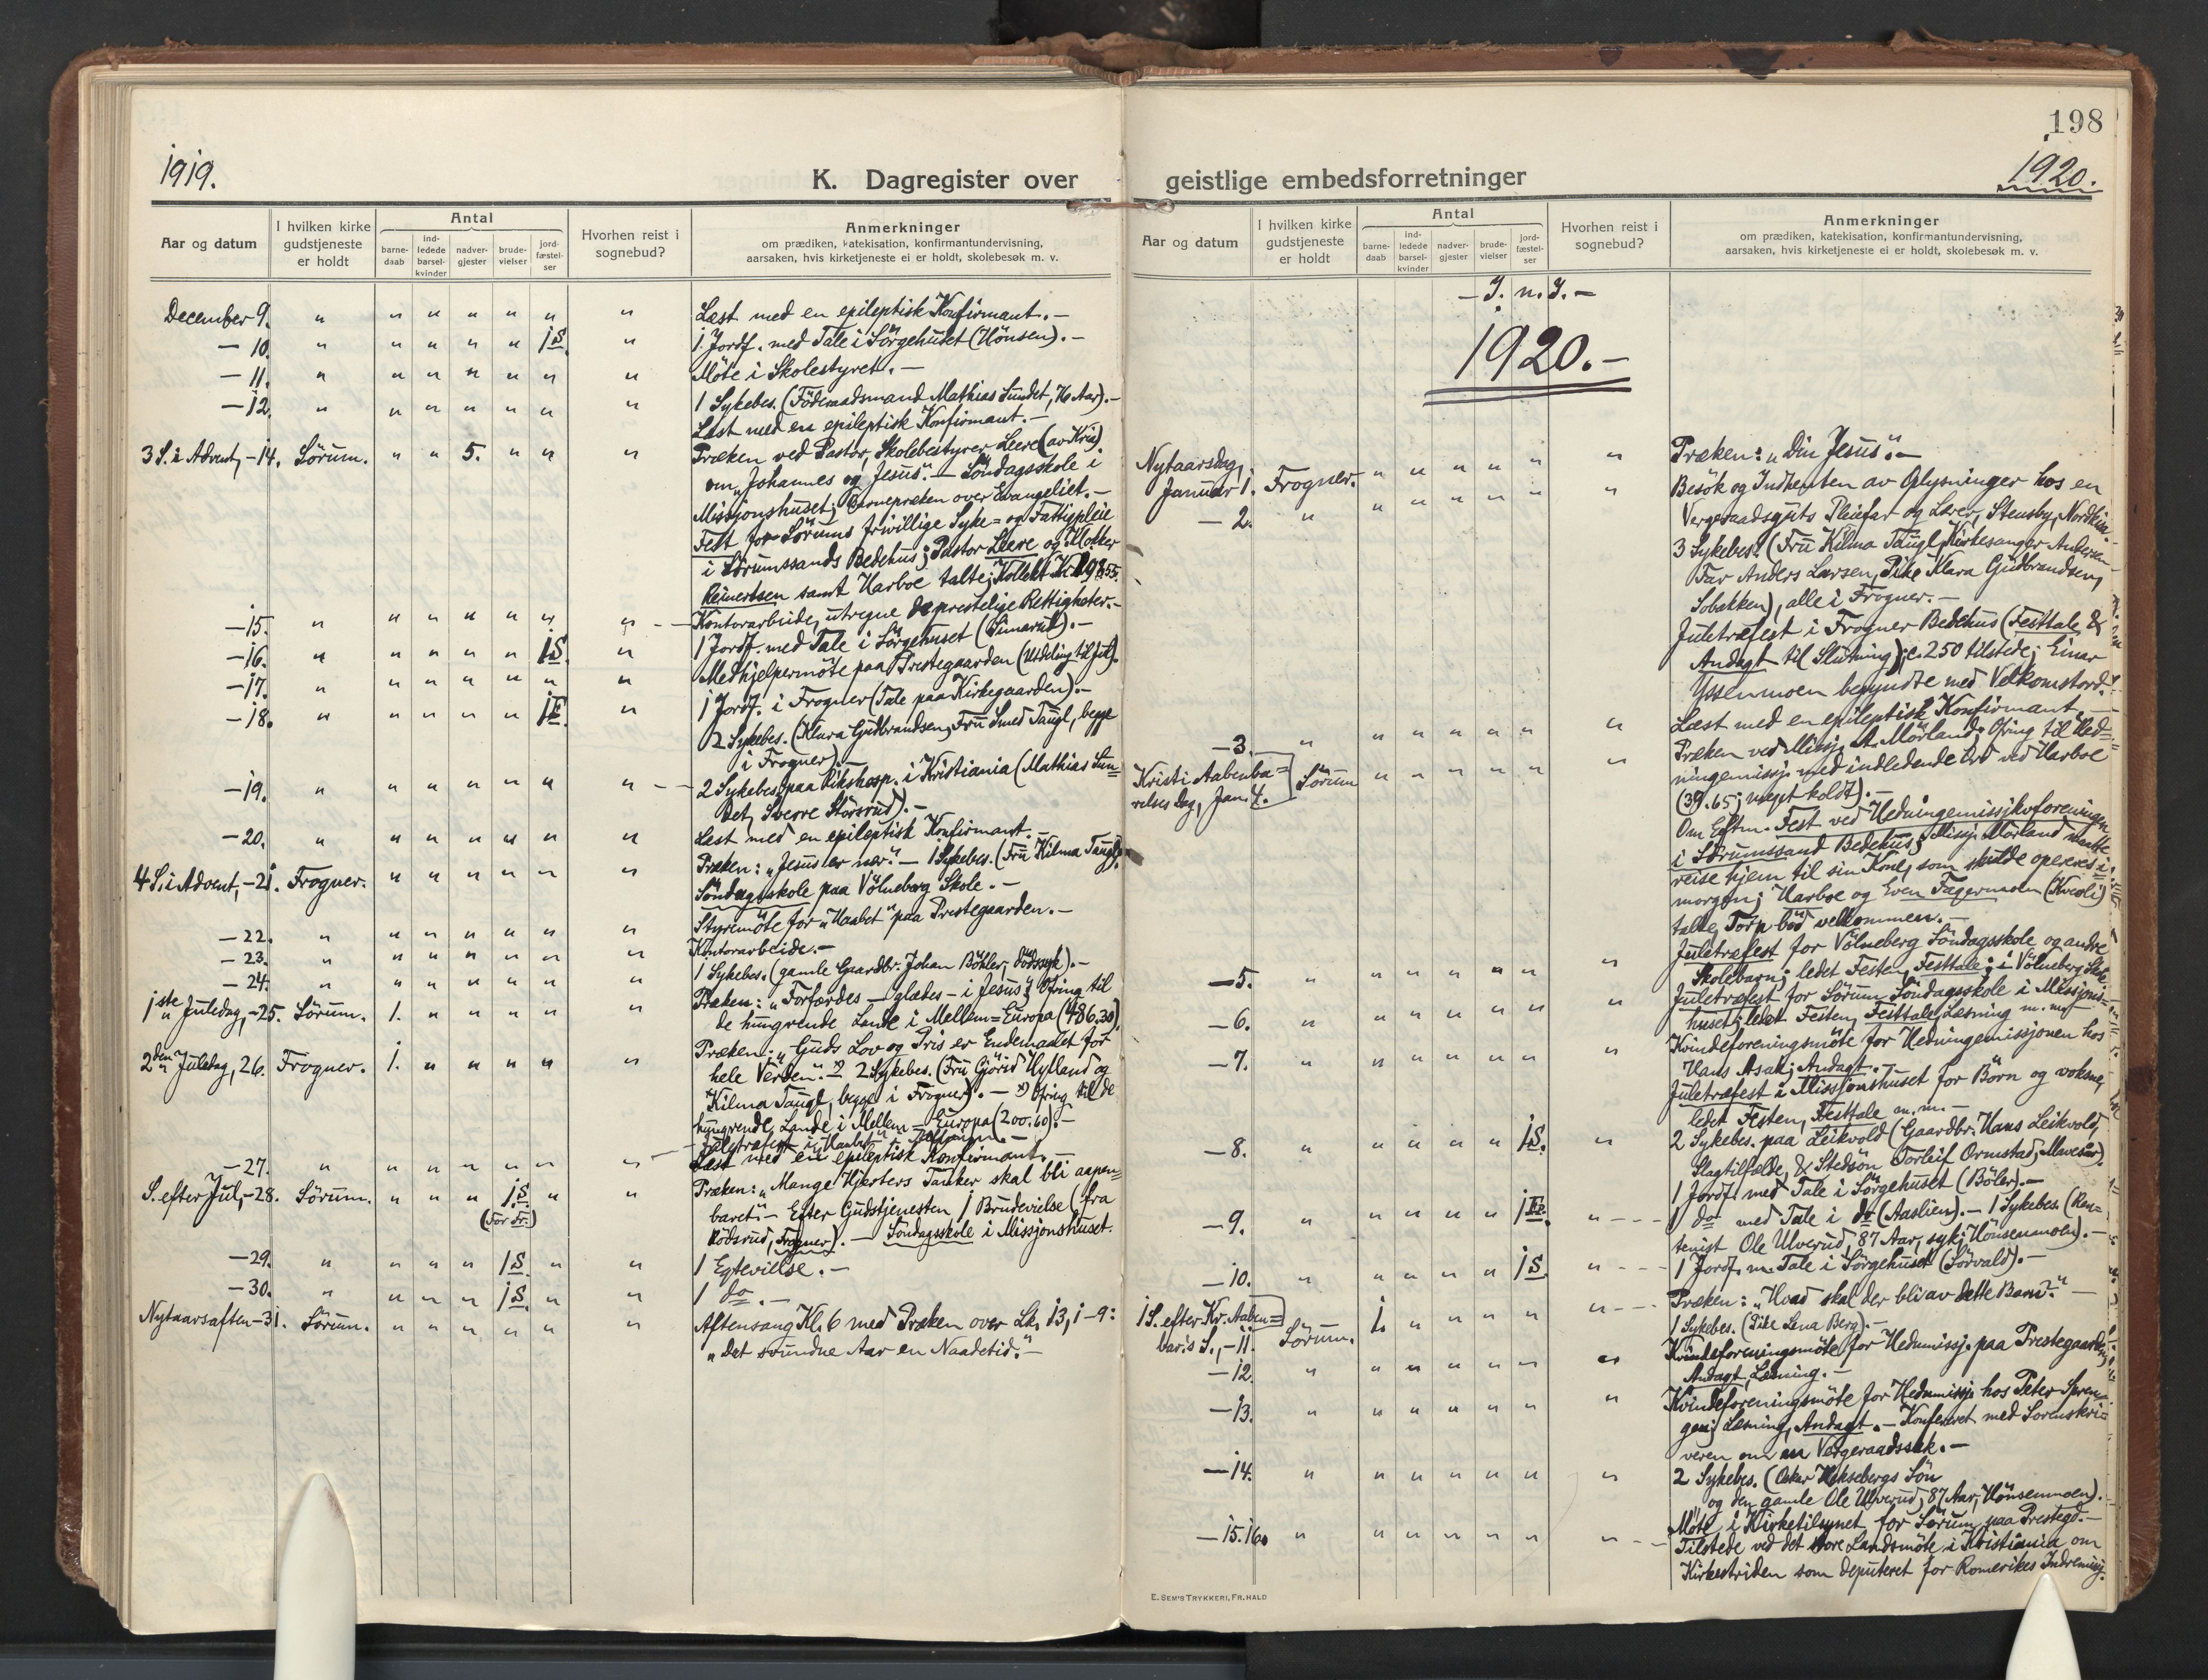 1919.
K. Dagregister over
Aar og datum
I hvilken kirke gudstjeneste er holdt
Antal
barne-daab
ind-ledede barsel-kvinder
nadver-gjester
brude-vielser
jord-fæstel-ser
Hvorhen reist i sognebud?
Anmerkninger
om prædiken, katekisation, konfirmantundervisning,
aarsaken, hvis kirketjeneste ei er holdt, skolebesøk m. v.
December 9. " " " " " " " Læst med en epileptisk Konfirmant. -
- 10. " " " " " 1 S. " 1 Jordf. med Tale i Sörgehuset (Hönsen). -
- 11. " " " " " " " Möte i Skolestyret. -
- 12. " " " " " " " 1 Sykebes. (Föderaadsmand Mathias Sundet, Aar). -
Læst med en epileptisk Konfirmant. -
3 S. i Advent, - 14. Sörum. " " 5. " " " Præken ved Pastor, Skolebestyrer Leere (av Kria).
om "Johannes og Jesus". - Söndagsskole i
Missionshuset; Barnepræken over Evangeliet. -
Fest for Sörums frivillige Syke- og Fattigpleie
i Sörumssands Bedehus; Pastor Leere og Klokker
Reinertsen samt Harboe talte; Kollekt Kr.
- 15. " " " " " " " - - Kontorarbeide, utregne de prestelige Rettigheter. -
- 16. " " " " " 1 S. " 1 Jordf. med Tale i Sörgehuset (Simarud). -
- 17. " " " " " " " Medhjelpermöte paa Prestegaarden (Utdeling til Jul).
- 18. " " " " " 1 F. " 1 Jordf. i Frogner (Tale paa Kirkegaarden). -
2 Sykebes. (Klara Gudbrandsen, Fru Smed Taugl, begge
i Frogner). -
- 19. " " " " " " " - - 2 Sykebes. paa Rikshosp. i Kristiania (Mathias Sun=
det, Sverre Störsrud). -
- 20. " " " " " " " Læst med en epileptisk Konfirmant. -
4 S. i Advent, - 21. Frogner. " " " " " " Præken: "Jesus er nær". - 1 Sykebes. (Fru Kilma Taugl).
Söndagsskole paa Völneberg Skole. -
- 22. " " " " " " " Styremöte for "Haabet" paa Prestegaarden. -
- 23. " " " " " " " Kontorarbeide. -
- 24. " " " " " " " 1 Sykebes. (gamle Gaardbr. Johan Böhler, dödssyk). -
1ste Juledag, - 25. Sörum. 1. " " " " " Præken: "Forfærdes - glædes - i Jesus"; Ofring til
de hungrende Lande i Mellem=Europa (486.30).
2den Juledag, 26. Frogner. 1. " " " " " Præken: "Guds Lov og Pris er Endemaalet for
hele Verden". x) 2 Sykebes. (Fru Gjörid Hylland og
Kilma Taugl, begge i Frogner). - x) Ofring til de
hungrende Lande i Mellem=Europa (200.60). -
- Juletræfest i "Haabet"
- 27. " " " " " " " Læst med en epileptisk Konfirmant. -
S. efter Jul, - 28. Sörum. " " " 1 S. " " Præken: "Mange Hjerters Tanker skal bli aapen=
(For Fr.) baret". - Efter Gudstjenesten 1 Brudevielse (fra
Rödsrud, Frogner). - Söndagsskole i Missjonshuset.
- 29. " " " " 1 S. " " 1 Egtevielse. -
- 30. " " " " 1 S. " " 1 do. -
Nytaarsaften - 31. Sörum. " " " " " " Aftensang Kl. 6 med Præken over Lk. 13, 1-9:
"Det svundne Aar en Naadetid". -
198
1920.
geistlige embedsforretninger
Aar og datum
I hvilken kirke gudstjeneste er holdt
Antal
barne-daab
ind-ledede barsel-kvinder
nadver-gjester
brude-vielser
jord-fæstel-ser
Hvorhen reist i sognebud?
Anmerkninger
om prædiken, katekisation, konfirmantundervisning,
aarsaken, hvis kirketjeneste ei er holdt, skolebesøk m. v.
- J. n. J. -
1920. -
Nytaarsdag,
Januar 1. Frogner. " " " " " " Præken: "Din Jesus". -
- 2. " " " " " " " Besök og Indhenten av Oplysninger hos en
Vergeraadsguts Pleiefar og Lærer, Stensby,
3 Sykebes. (Fru Kilma Taugl, Kirkesanger Andersen
Far Anders Larsen, Pike Klara Gudbrandsen,
Sobakken), alle i Frogner. -
Juletræfest i Frogner Bedehus (Festtale &
Andagt til Slutning); c. 250 tilstede; Einar
Yssenmoen begyndte med Velkomstord. -
- 3. " " " " " " " Læst med en epileptisk Konfirmant. -
Kristi Aabenba=
relses Dag, Jan. 4. Sörum " " " " " " Præken ved Missj. A. Mörland; Ofring til Hed=
ningemissj. med indledende Ord ved Harboe
(39.65; meget koldt). -
Om Eftm. Fest ved Hedningemissjksforeningen
i Sörumssand Bedehus; Missj. Mörland maatte
reise hjem til sin Kone, som skulde opereres i
morgen; Harboe og Even Fagermoen (Kveoli)
talte, Torp bød velkommen. -
- 5. " " " " " " " Juletræfest for Völneberg Söndagsskole og andre
Skolebarn; ledet Festen, Festtale; i Völneberg Skole.
- 6. " " " " " " " Juletræfest for Sörum Söndagsskole i Missjons=
huset; ledet Festen, Festtale, Læsning m. m.
- 7. " " " " " " " Kvindeforeningsmöte for Hedningemissjonen hos
Hans Asak; Andagt. -
Juletræfest i Missjonshuset for Börn og voksne,
ledet Festen, Festtale m. m. -
- 8. " " " " " 1 S. " 2 Sykebes. paa Leikvold (Gaardbr. Hans Leikvold,
Slagtilfælde, & Stedsön Torleif Ormstad, Mavesår).
1 Jordf. med Tale i Sörgehuset (Böler). -
- 9. " " " " " 1 Fr. " - - - 1 do. med Tale i do. (Aaslien). - 1 Sykebes. (Ren=
tenist Ole Ulverud, 87 Aar, syk; Hönsenmoen). -
- 10. " " " " " 1 S. " - - - 1 Jordf. m. Tale i Sörgehuset (Sörvald). -
1 S. efter Kr. Aaben=
bar's S., - 11. Sörum. 1. " " " " " - - - Præken: "Hvad skal der bli av dette Barn?" -
1 Sykebes. (Pike Lena Berg). -
- 12. " " " " " " " Kvindeforeningsmöte for Hednmissj. paa Prestegaarden,
Andagt, Læsning. -
- 13. " " " " " " " Kvindeforeningsmöte for Hednmissj. hos Peter
Læsning, Andagt. - Konferert med Sorenskri=
veren om en Vergeraadssak. -
- 14. " " " " " " " 2 Sykebes. (Oskar Heksebergs Sön
og den gamle Ole Ulverud, 87 Aar, Hönsenmoen).
Möte i Kirketilsynet for Sörum paa Prestegd. -
- 15. 16. " " " " " " " - - Tilstede ved det store Landsmöte i Kristiania om
Kirkestriden som deputeret for Romerikes Indremissj.
E. SEM'S TRYKKERI, FR.HALD